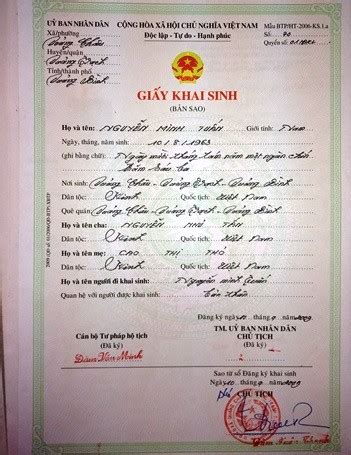 ỦY BAN NHÂN DÂN
CỘNG HÒA XÃ HỘI CHỦ NGHĨA VIỆT NAM
Mẫu BTP/HT-2006-KS.1.a
Xã/phường
Độc lập - Tự do - Hạnh phúc
Số 90
Quảng Châu
Quyển số 01/
Huyện/quận
Quảng Trạch
Tỉnh/thành phố
Quảng Bình
GIẤY KHAI SINH
(BẢN SAO)
Họ và tên: NGUYỄN MINH TUẤN Giới tính: Nam
Ngày, tháng, năm sinh: 10/8/1963
(ghi bằng chữ): Ngày mười tháng tám năm một ngàn chín
trăm sáu ba
Nơi sinh: Quảng Châu - Quảng Trạch - Quảng Bình
Dân tộc: Kinh Quốc tịch: Việt Nam
Quê quán: Quảng Châu - Quảng Trạch - Quảng Bình
Họ và tên cha: NGUYỄN NHƯ TÂN
Dân tộc: Kinh Quốc tịch: Việt Nam
Họ và tên mẹ: CAO THỊ THỎ
Dân tộc: Kinh Quốc tịch: Việt Nam
Họ và tên người đi khai sinh: Nguyễn Minh Tuấn
Quan hệ với người được khai sinh: Bản thân
Đăng ký ngày 10 tháng 9 năm 2009
Cán bộ Tư pháp hộ tịch
(Đã ký)
TM. ỦY BAN NHÂN DÂN
CHỦ TỊCH
(Đã ký)
Đàm Văn Minh
Sao từ sổ Đăng ký khai sinh
Ngày 10 tháng 9 năm 2009
CHỦ TỊCH